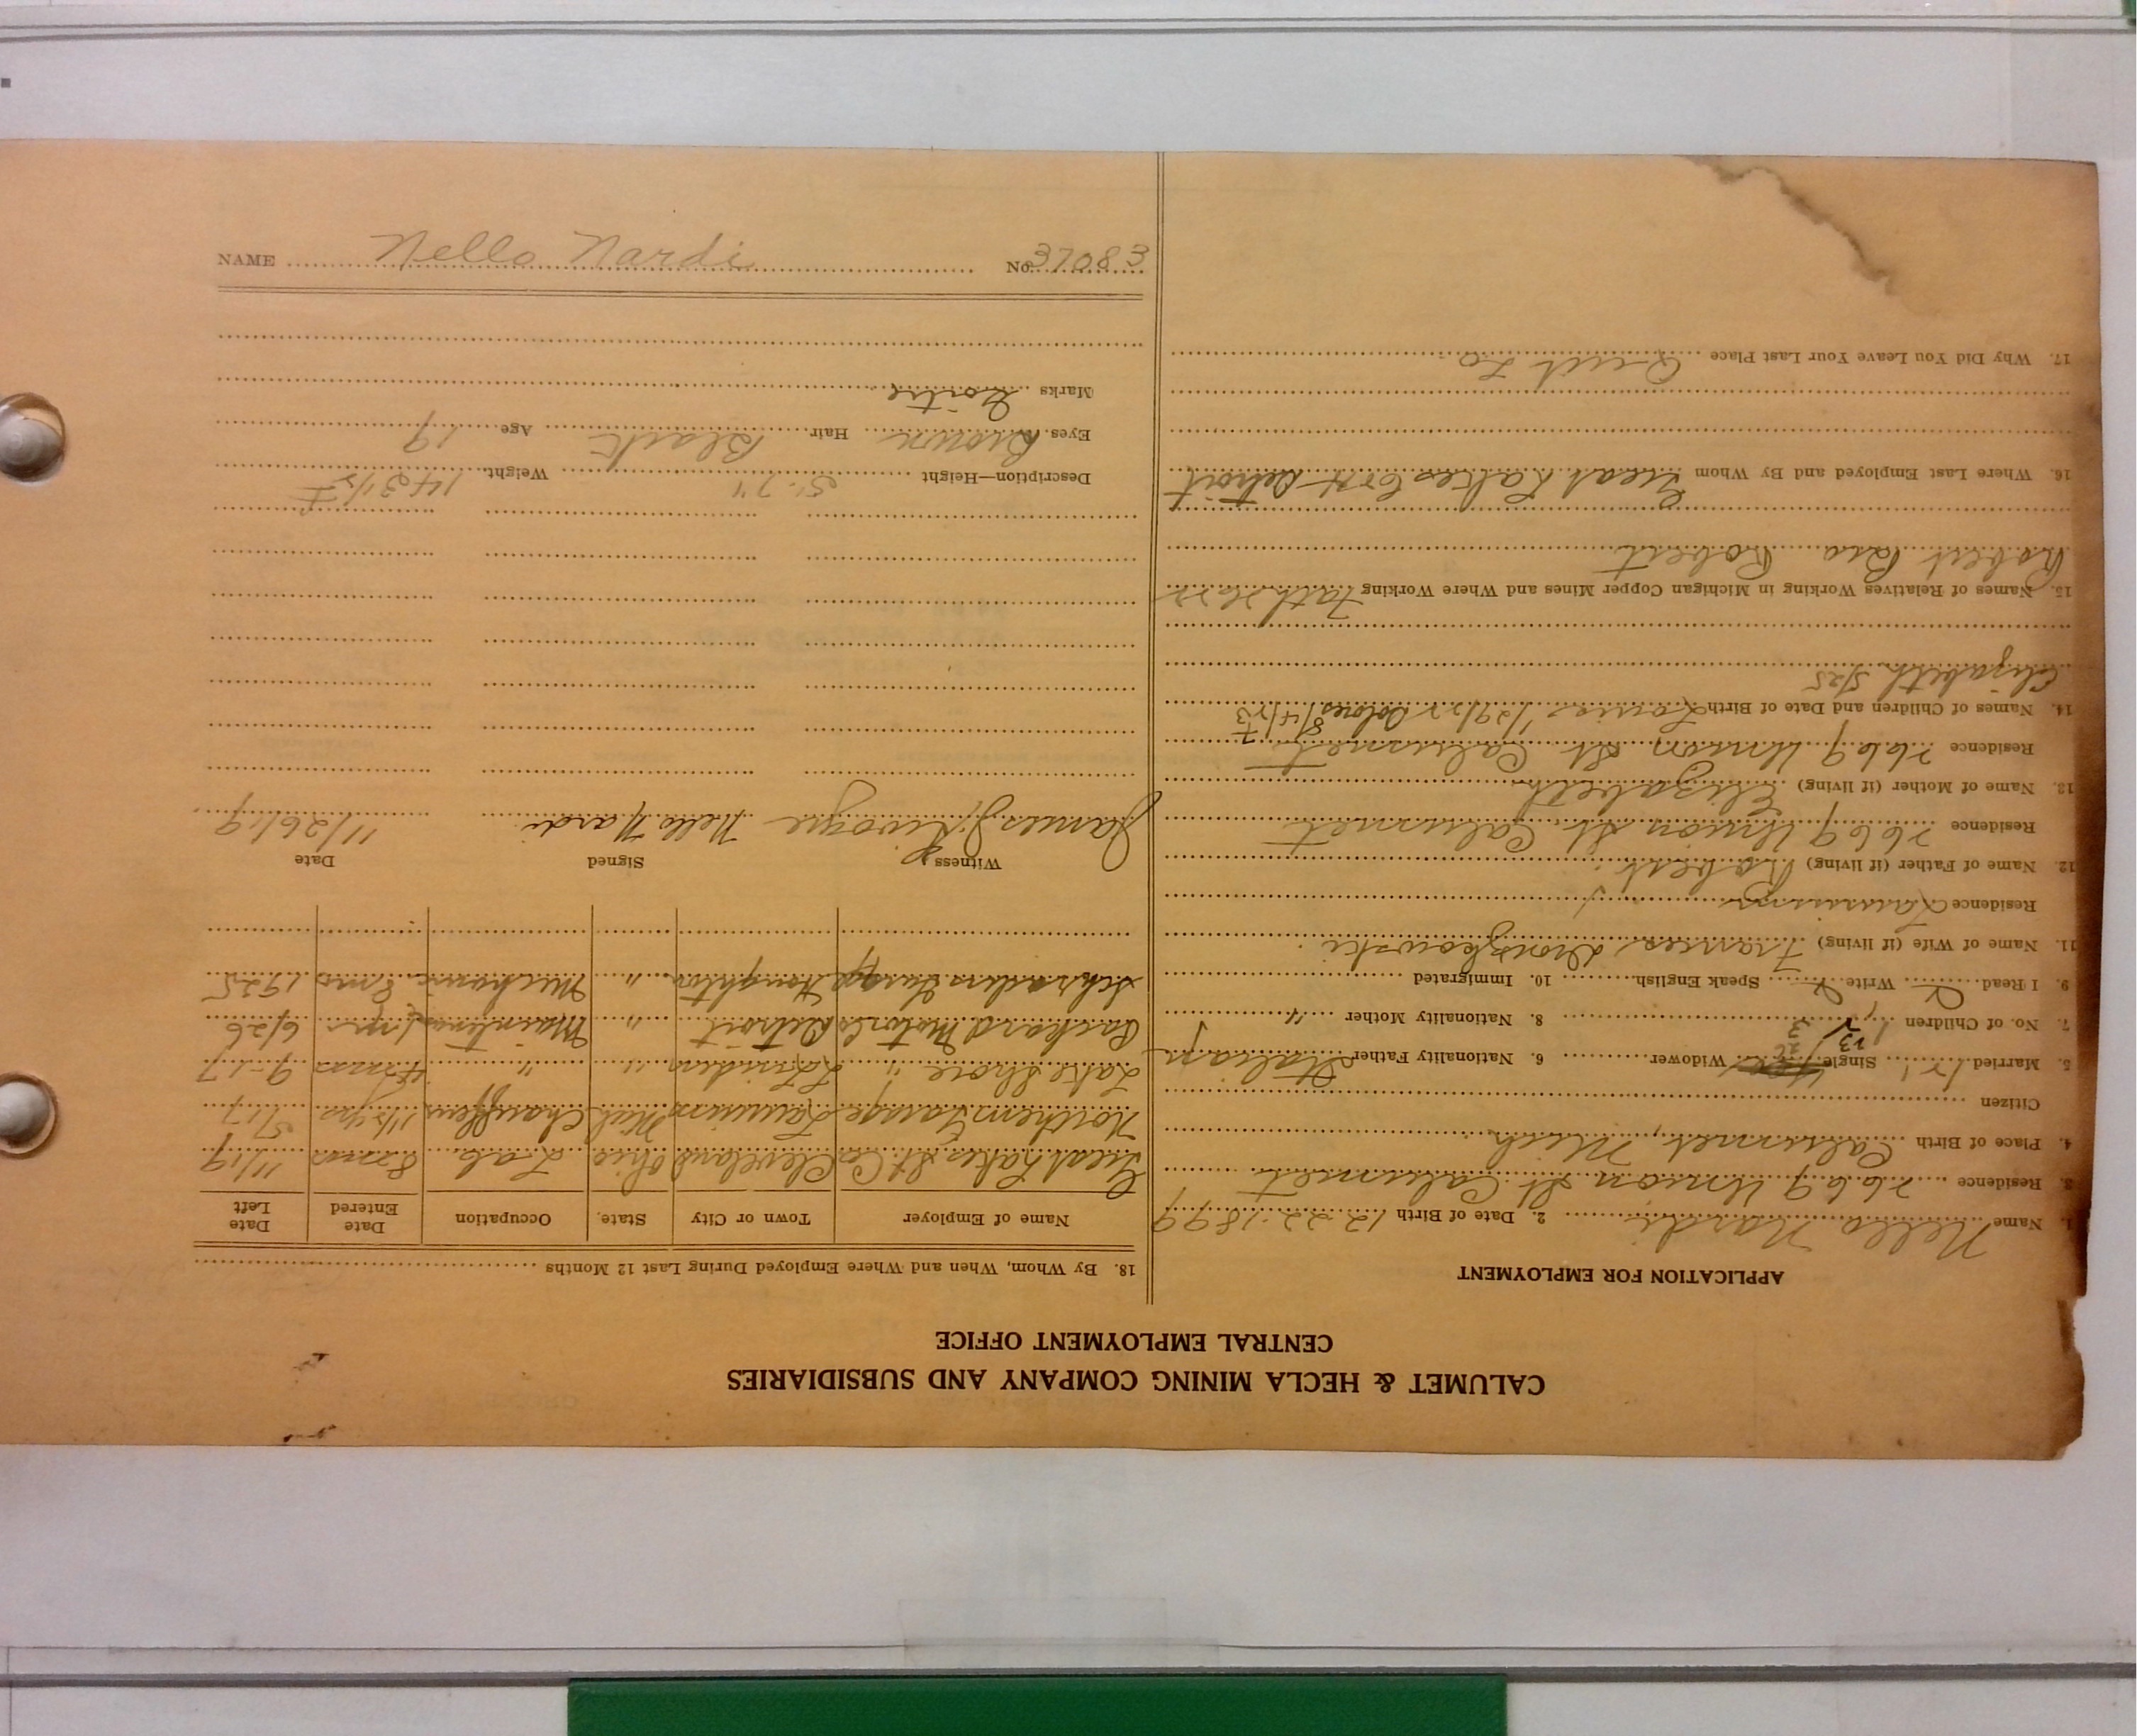 CALUMET & HECLA MINING COMPANY AND SUBSIDIARIES
CENTRAL EMPLOYMENT OFFICE
APPLICATION FOR EMPLOYMENT
1. Name Nello Nardi 2. Date of Birth 12-22-1899
3. Residence 2669 Union St Calumet
4. Place of Birth Calumet Mich
Citizen
5. Married Single Widower 6. Nationality Father Italian
7. No. of Children 3 8. Nationality Mother "
9. I Read Write Speak English 10. Immigrated
11. Name of Wife (if living) Frances
Residence Laurium
12. Name of Father (if living) Robert
Residence 2669 Union St. Calumet
13. Name of Mother (if living) Elizabeth
Residence 2669 Union St Calumet
14. Names of Children and Date of Birth Louise 1/29/22 Dolores 8/4/23
Elizabeth 5/25
15. Names of Relatives Working in Michigan Copper Mines and Where Working Father
Robert Bro Robert
16. Where Last Employed and By Whom Great Lakes Detroit
17. Why Did You Leave Your Last Place Quit
18. By Whom, When and Where Employed During Last 12 Months
Name of Employer Town or City State. Occupation Date Entered Date Left
Great Lakes St Co Cleveland Ohio Lab 8 mos 11/19
Northern Garage Laurium Mich Chauffeur 1 1/2 yrs 5/17
Lake Shore " " " 4 mos 9-17
Packard Motors Detroit " 1 yr 6/26
Schraders Garage Houghton " Mechanic 8 mo 1925
Witness Signed Date
James J. Nello Nardi 11/26/19
Description—Height 5'-7" Weight 143 1/2
Eyes Brown Hair Black Age 19
Marks Goitre
NAME Nello Nardi No. 37083